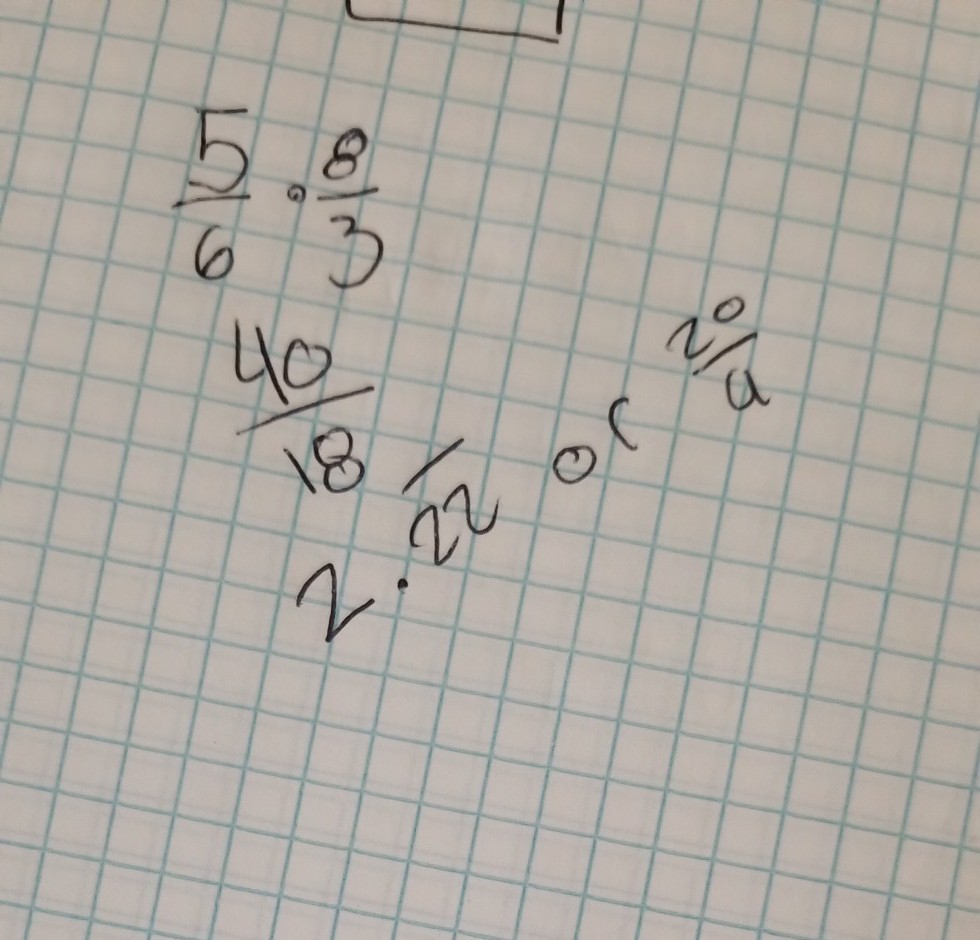 5/6 · 8/3
40/18
2.2̅2̅ or 20/9